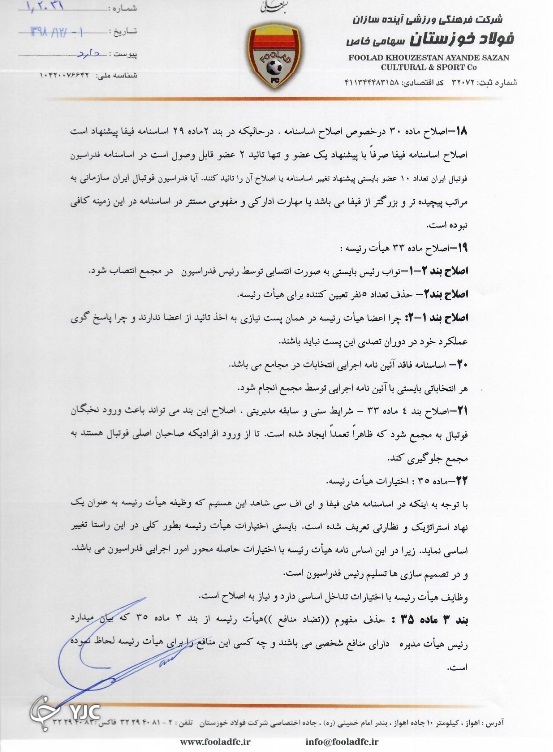 بسمه تعالی
شماره : ۱,۲۰۳۱
تاریخ : ۱۳۹۸/۱۲/۰۱
پیوست : دارد
شناسه ملی: ۱۰۴۲۰۰۷۶۶۴۲
FOOLAD
FC
شرکت فرهنگی ورزشی آینده سازان
فولاد خوزستان سهامی خاص
FOOLAD KHOUZESTAN AYANDE SAZAN
CULTURAL & SPORT Co
شماره ثبت: ۳۲۰۷۲ کد اقتصادی: ۴۱۱۳۴۴۴۸۳۱۵۸
۱۸-اصلاح ماده ۳۰ درخصوص اصلاح اساسنامه . درحالیکه در بند ۲ماده ۲۹ اساسنامه فیفا پیشنهاد است
اصلاح اساسنامه فیفا صرفاً با پیشنهاد یک عضو و تنها تائید ۲ عضو قابل وصول است در اساسنامه فدراسیون
فوتبال ایران تعداد ۱۰ عضو بایستی پیشنهاد تغییر اساسنامه یا اصلاح آن را تائید کنند. آیا فدراسیون فوتبال ایران سازمانی به
مراتب پیچیده تر و بزرگتر از فیفا می باشد یا مهارت ادارکی و مفهومی مستتر در اساسنامه در این زمینه کافی
نبوده است.
۱۹-اصلاح ماده ۳۳ هیأت رئیسه :
اصلاح بند ۲-۱-نواب رئیس بایستی به صورت انتسابی توسط رئیس فدراسیون در مجمع انتصاب شود.
اصلاح بند۲- حذف تعداد ۵نفر تعیین کننده برای هیأت رئیسه.
اصلاح بند ۱-۲: چرا اعضا هیأت رئیسه در همان پست نیازی به اخذ تائید از اعضا ندارند و چرا پاسخ گوی
عملکرد خود در دوران تصدی این پست نباید باشند.
۲۰- اساسنامه فاقد آئین نامه اجرایی انتخابات در مجامع می باشد.
هر انتخاباتی بایستی با آئین نامه اجرایی توسط مجمع انجام شود.
۲۱-اصلاح بند ٤ ماده ۳۳ - شرایط سنی و سابقه مدیریتی . اصلاح این بند می تواند باعث ورود نخبگان
فوتبال به مجمع شود که ظاهراً تعمداً ایجاد شده است. تا از ورود افرادیکه صاحبان اصلی فوتبال هستند به
مجمع جلوگیری کند.
۲۲-ماده ۳۵ : اختیارات هیأت رئیسه.
با توجه به اینکه در اساسنامه های فیفا و ای اف سی شاهد این هستیم که وظیفه هیأت رئیسه به عنوان یک
نهاد استراتژیک و نظارتی تعریف شده است. بایستی اختیارات هیأت رئیسه بطور کلی در این راستا تغییر
اساسی نماید. زیرا در این اساس نامه هیأت رئیسه با اختیارات حاصله محور امور اجرایی فدراسیون می باشد.
و در تصمیم سازی ها تسلیم رئیس فدراسیون است.
وظایف هیأت رئیسه با اختیارات تداخل اساسی دارد و نیاز به اصلاح است.
بند ۳ ماده ۳۵ : حذف مفهوم ((تضاد منافع ))هیأت رئیسه از بند ۳ ماده ۳۵ که بیان میدارد
رئیس هیأت مدیره دارای منافع شخصی می باشند و چه کسی این منافع را برای هیأت رئیسه لحاظ نموده
است.
آدرس : اهواز ، کیلومتر ۱۰ جاده اهواز ، بندر امام خمینی (ره) ، جاده اختصاصی شرکت فولاد خوزستان تلفن : ۲ - ۸۱ ۴۰ ۲۹ ۳۲ فاکس: ۸۳ ۴۰ ۲۹ ۳۲
www.fooladfc.ir info@fooladfc.ir
YJC